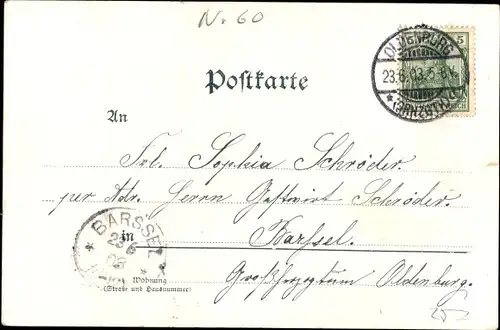 N. 60
OLDENBURG
23.6.03.5-6N.
* (GRHZGT.) *
5
Postkarte
An
Frl. Sophia Schröder.
per Adr. Herrn Gastwirt Schröder.
in Barssel.
BARSSEL
23 6
03
Großherzogtum Oldenburg.
Wohnung
(Straße und Hausnummer)